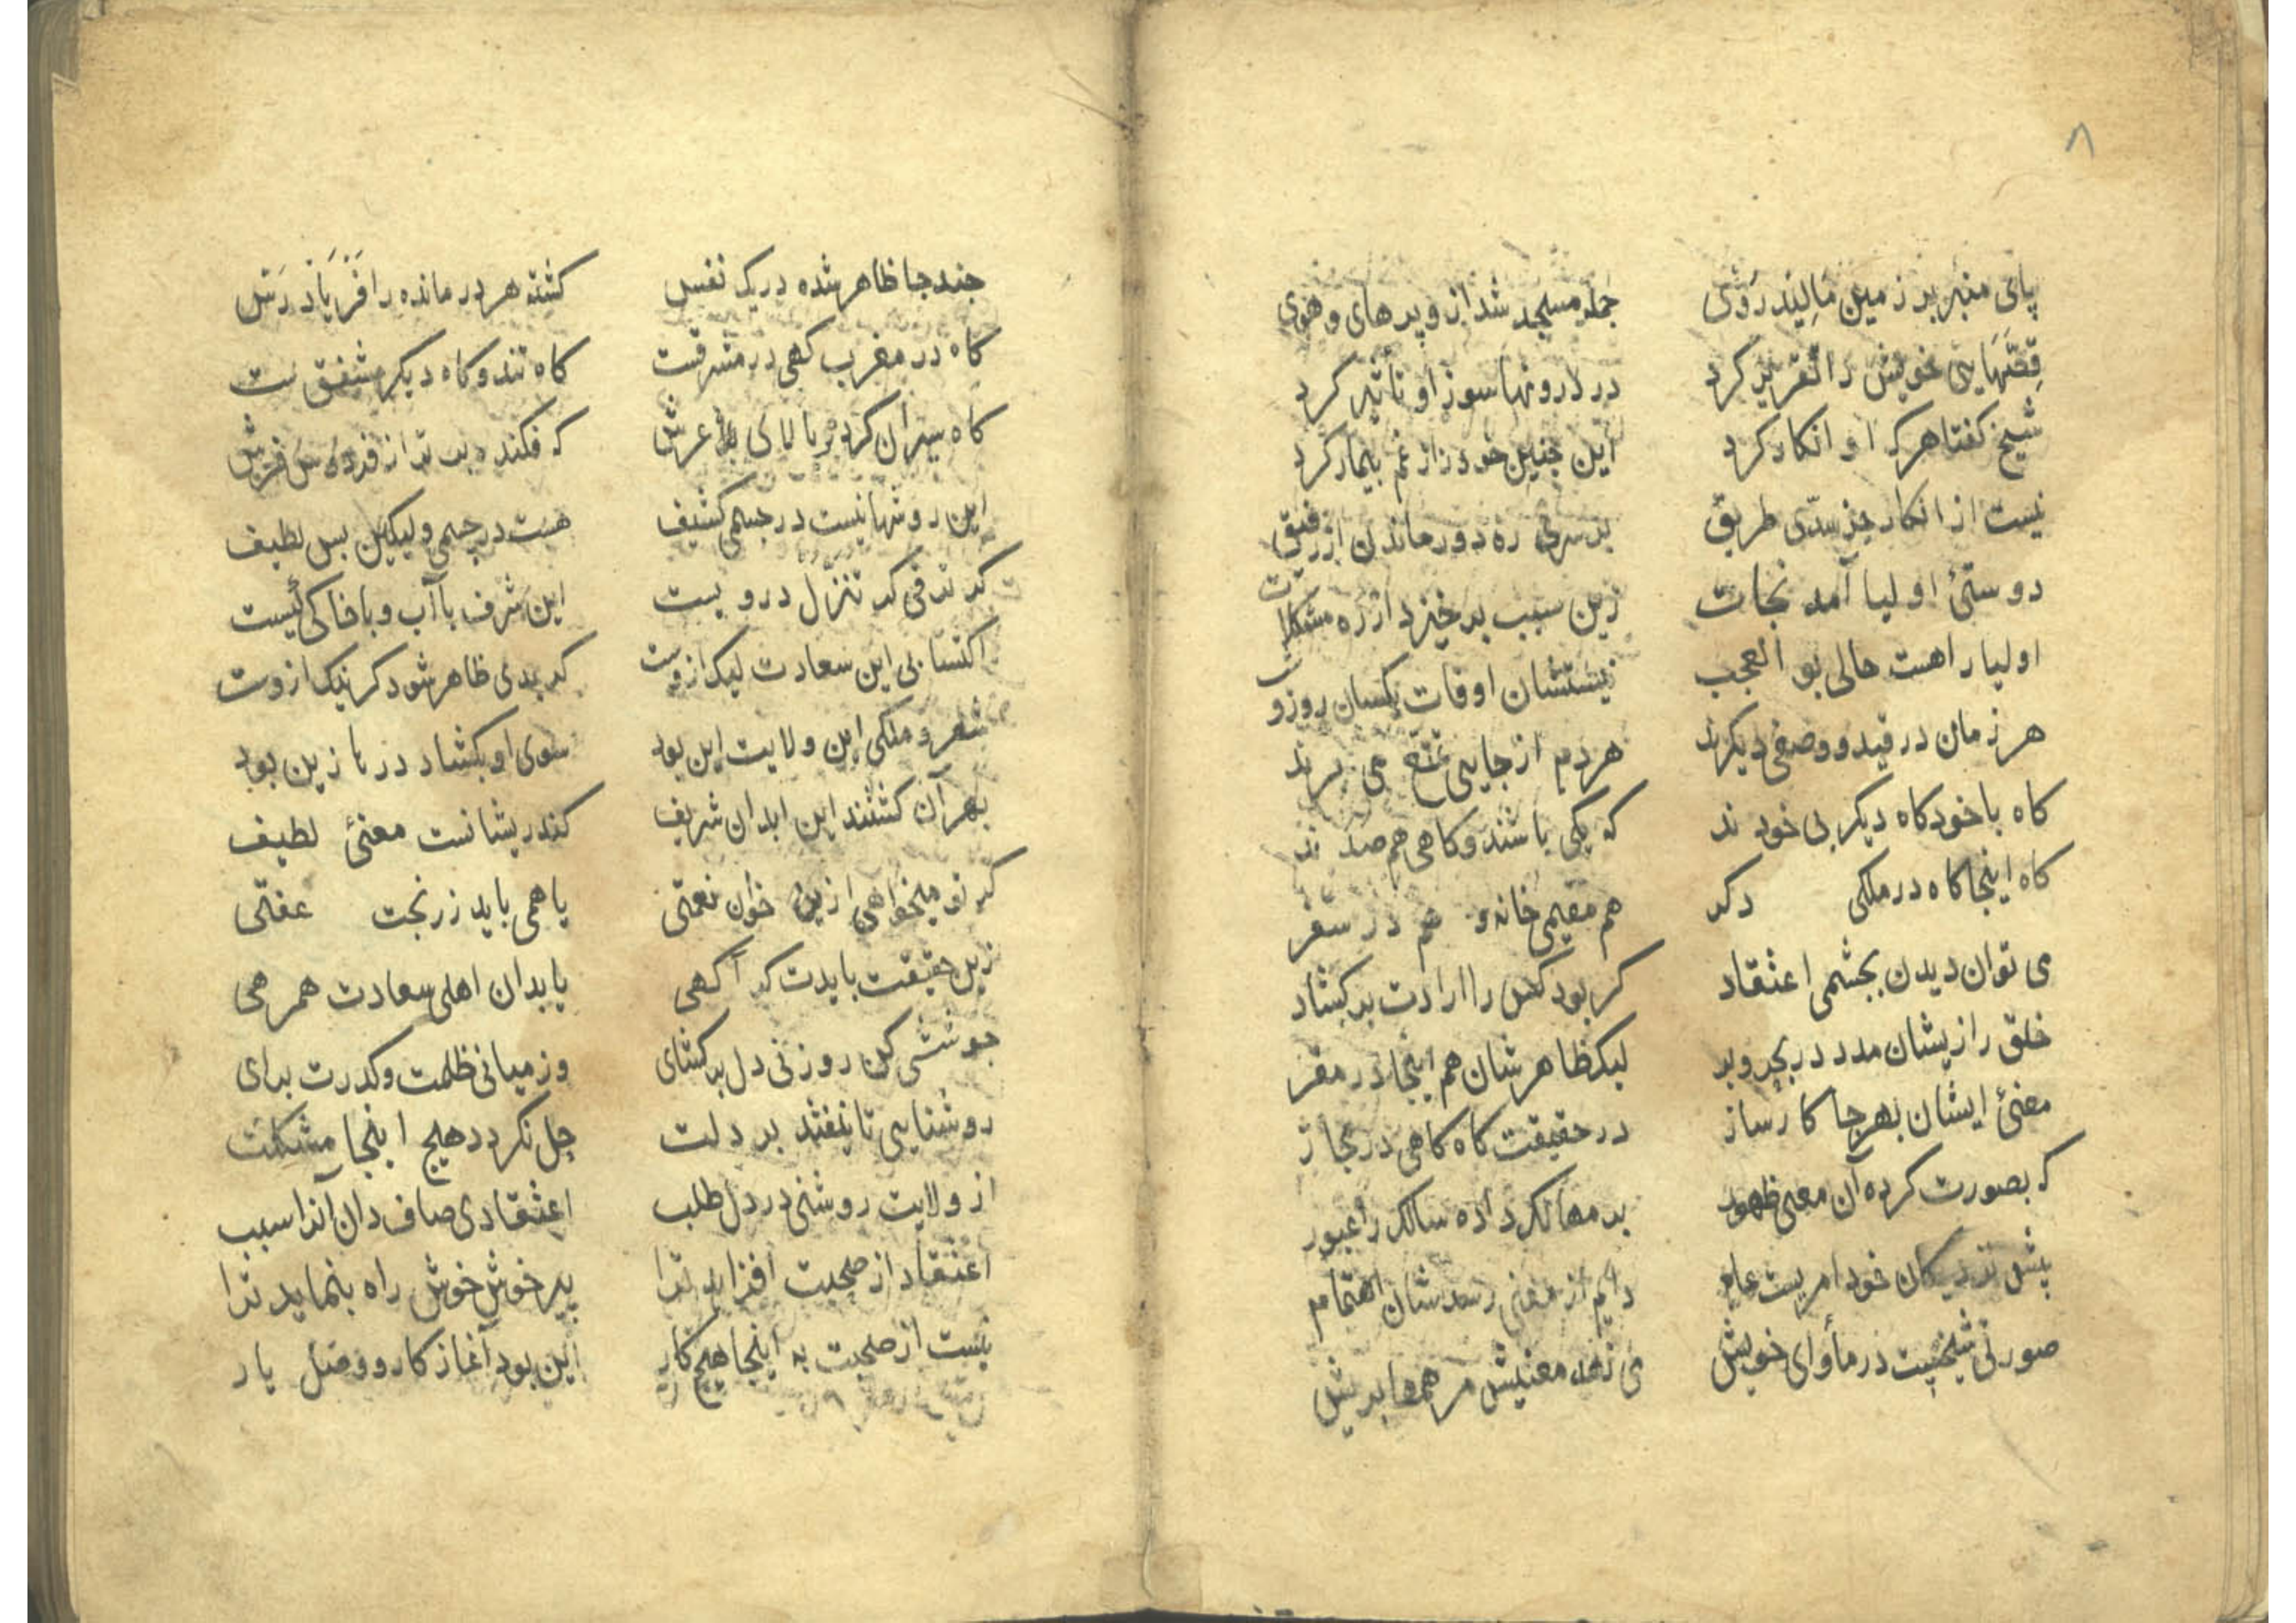 ۸
پای منبر بر زمین مالید روی جمله مسجد شد ازو پر های و هوی
قصّتهایی خویش را تقریر کرد در درونها سوز او تاثیر کرد
شیخ کفتا هرکه او انکار کرد این چنین خود را ز غم بیمار کرد
نیست از انکار جز سدّی طریق بر سری ره دور ماندن از رفیق
دوستئ اولیا آمد نجات زین سبب برخیزد از ره مشکلات
اولیا را هست حالی بو العجب نیستشان اوقات یکسان روز و
هر زمان در قید و وصفی دیکرند هردم از جایی تمتّع می برند
کاه با خود کاه دیکر بی خود ند که یکی باشند و کاهی هم صد ند
کاه اینجا کاه در ملکی دکر هم مقیمی خانه و هم در سفر
می توان دیدن بچشمی اعتقاد کر بود کس را ارادت بر کشاد
خلق را زیشان مدد در بحر و بر لیک ظاهرشان هم اینجا در مقر
معنئ ایشان بهرجا کارساز در حقیقت کاه کاهی در مجاز
که بصورت کرده آن معنی ظهور بر مهالک داده سالک را عبور
پیش نزدیکان خود امریست عام دایم از معنی رسدشان اهتمام
صورتی شیخیت در مأوای خویش می نهد معنیش مرهمها بریش
جند جا ظاهر شده در یک نفس کشته هر در مانده را فریاد رس
کاه در مغرب کهی در مشرقست کاه تند و کاه دیکر مشفق ست
کاه سیران کرد بر بالای عرش که فکنده بت تر از فردوس فرش
این روشها نیست در جسم کثیف هست در جسمی ولیکن بس لطیف
کر ترقی کر تنزّل در ویست این شرف باآب و باخاکی ئیست
اکتسابی این سعادت لیک ازوست کر بدی ظاهر شود کر نیک ازوست
شهر و ملکی این ولایت این بود سوی او بکشاد درها زین بود
بهر آن کشتند این ابدان شریف کندریشانست معنئ لطیف
کر تو میخواهی ازین خوان نعمتی یا همی باید زرنجت عفتی
زین حقیقت بایدت کر آکهی یابدان اهلی سعادت همرهی
جوششی کن روزنی دل بر کشای وز میانی ظلمت و کدرت برای
روشنایی تا نیفتد بر دلت حل نکردد هیج اینجا مشکلت
از ولایت روشنی در دل طلب اعتقادی صاف دان آنرا سبب
اعتقاد از صحبت افزاید ترا پیر خوش خوش راه بنماید ترا
نیست از صحبت به اینجا هیچ کار این بود آغاز کار و وصل یار